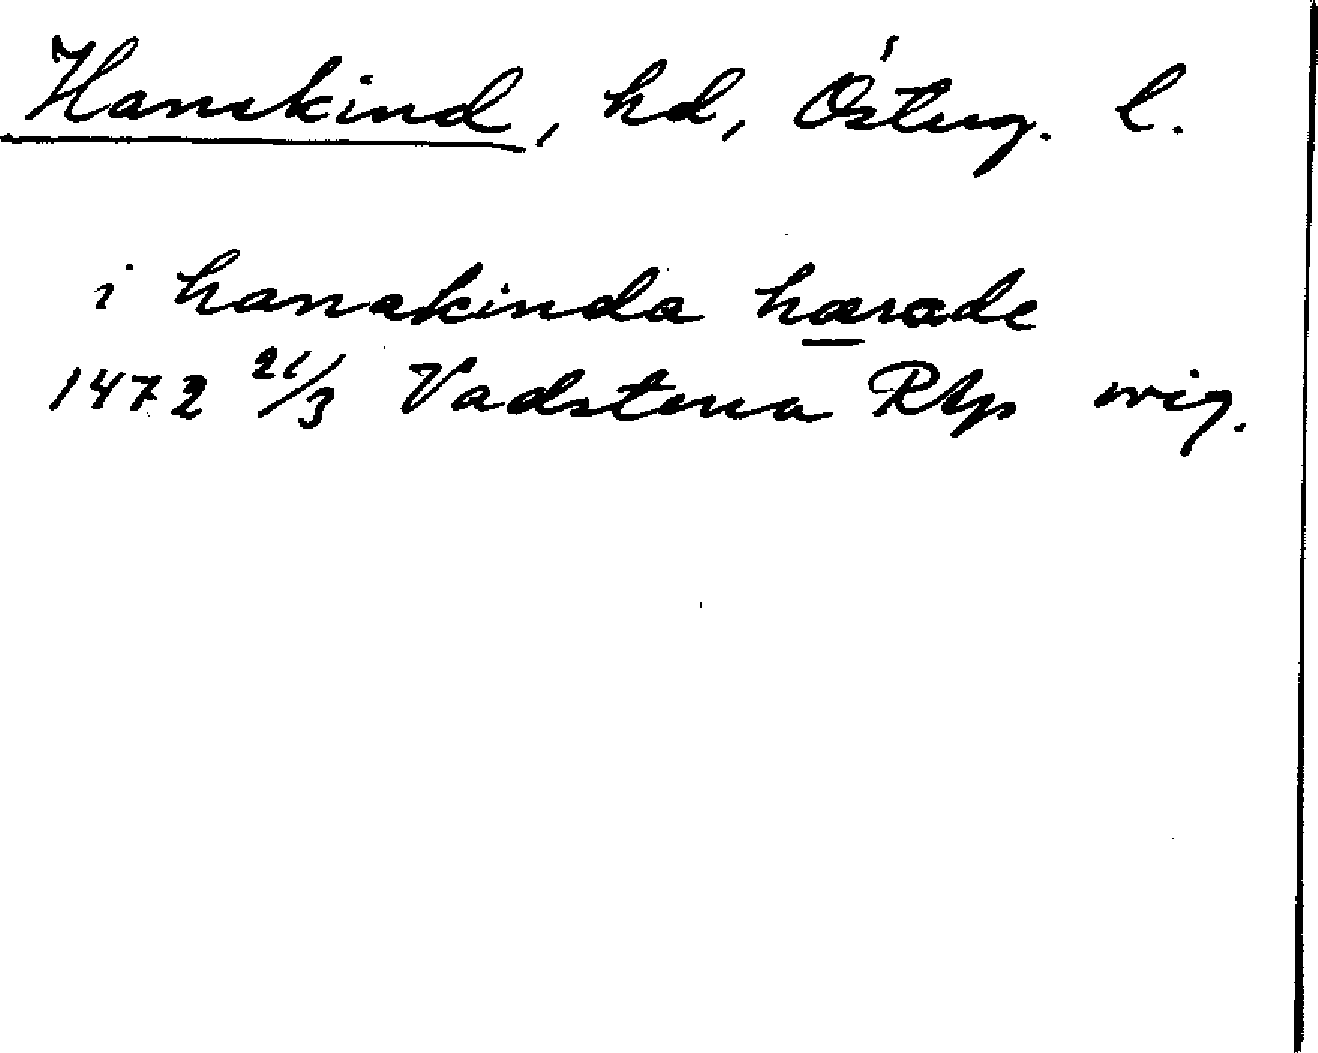 Hanekind, hd, Österg. l.
i hanakinda hærade
1472 21/3 Vadstena RAp orig.